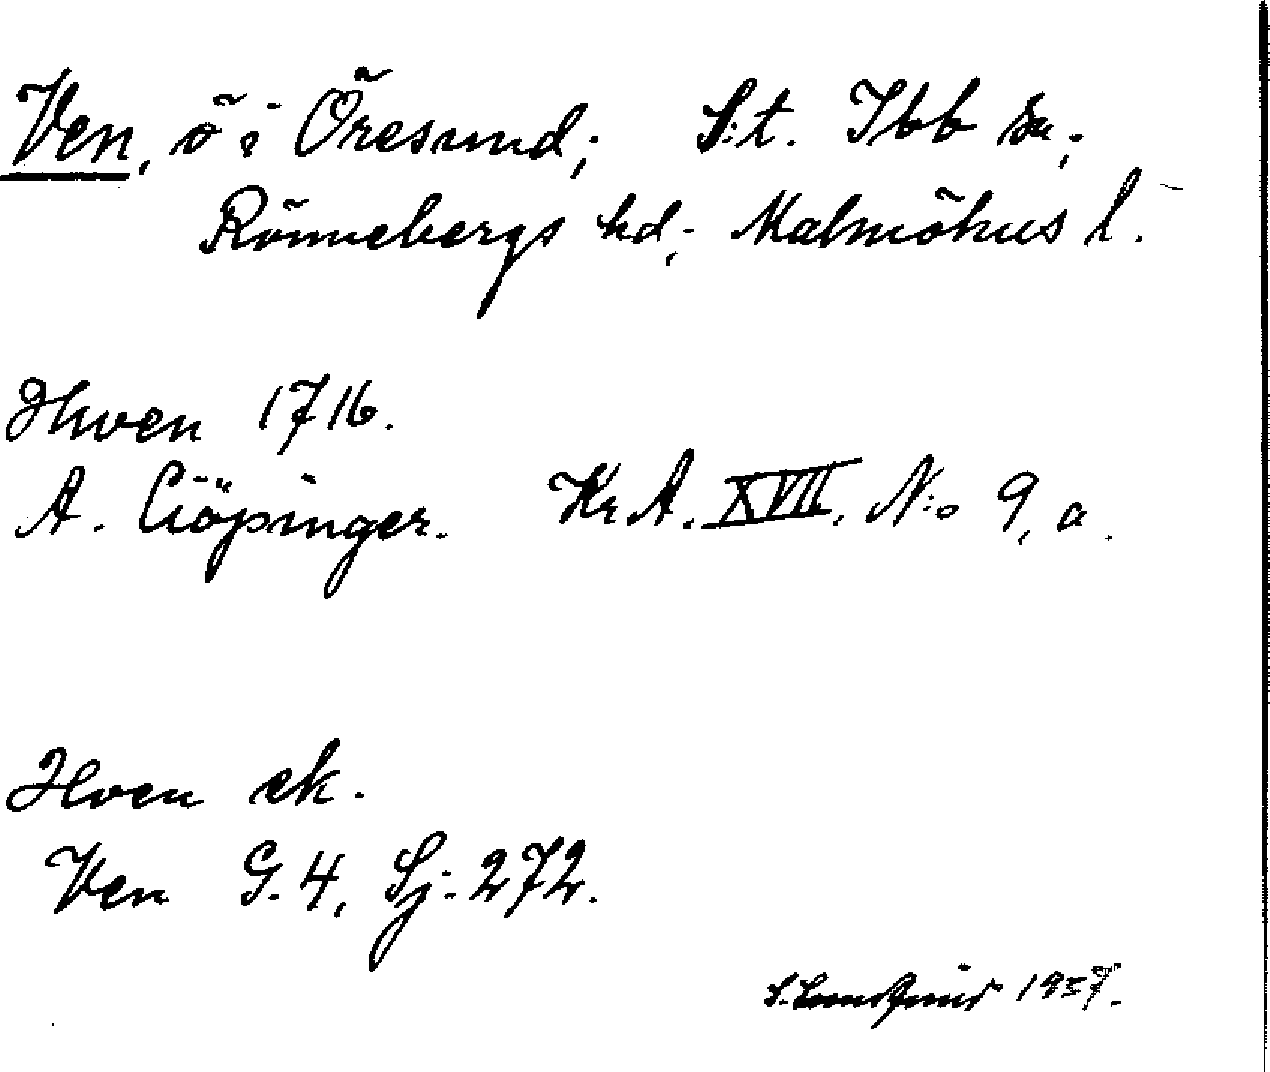 Ven, ö i Öresund; S:t. Ibb sn;
Rönnebergs hd; Malmöhus l.
Hven 1716.
A. Ciöpinger. KrA. XVII. N:o 9, a.
Hven ek.
Ven G. 4, Sj. 272.
1957.